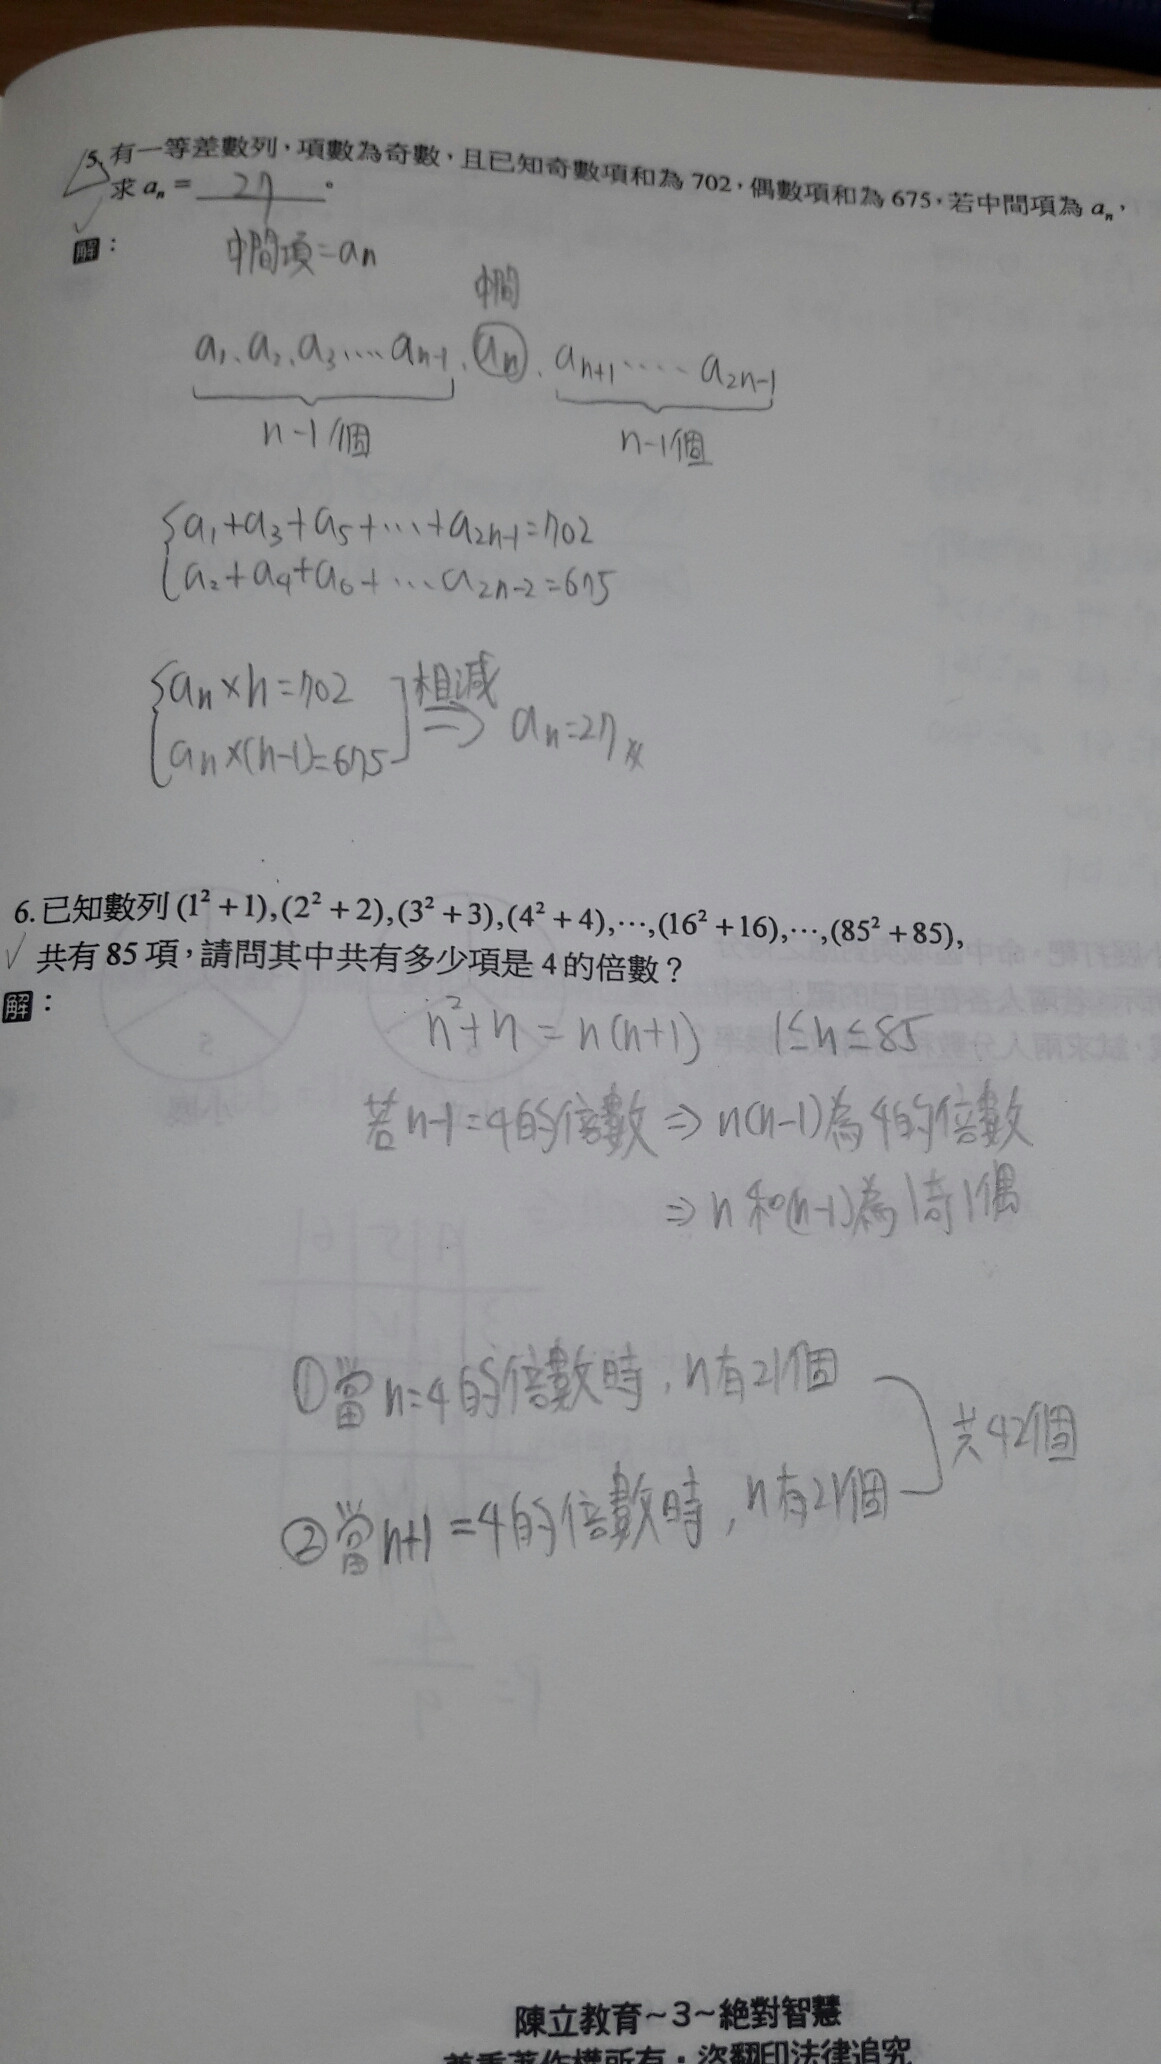 5. 有一等差數列，項數為奇數，且已知奇數項和為 702，偶數項和為 675，若中間項為 aₙ，
求 aₙ = 27 。
解：
中間項=aₙ
中間
a₁、a₂、a₃……aₙ₋₁、aₙ、aₙ₊₁……a₂ₙ₋₁
n-1個 n-1個
a₁+a₃+a₅+…+a₂ₙ₋₁=702
a₂+a₄+a₆+…a₂ₙ₋₂=675
aₙ×n=702
aₙ×(n-1)=675
相減
⇒ aₙ=27
6. 已知數列 (1²+1),(2²+2),(3²+3),(4²+4),⋯,(16²+16),⋯,(85²+85),
共有 85 項，請問其中共有多少項是 4 的倍數？
解：
n²+n = n(n+1) 1≤n≤85
若n-1=4的倍數 ⇒ n(n-1)為4的倍數
⇒ n和(n-1)為1奇1偶
①當n=4的倍數時，n有21個
共42個
②當n+1=4的倍數時，n有21個
陳立教育~3~絕對智慧
尊重著作權所有・盜翻印法律追究